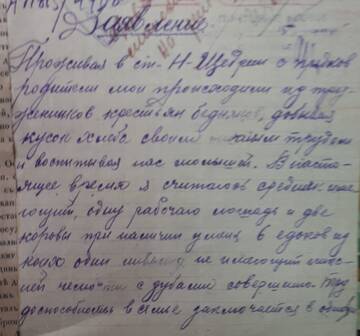 Заявление
Проживая в ст. Н-Щедрин с прадедов
родители мои происходили из тру-
жеников крестьян бедняков, добывая
кусок хлеба своим трудом
и воспитывая нас малышей. В насто-
ящее время я считаюсь средняк име-
ющий, одну рабочаю лошадь и две
коровы при наличии у меня 6 едоков из
коих один не имеющий
совершенно. Тру-
доспособность в семье заключается в